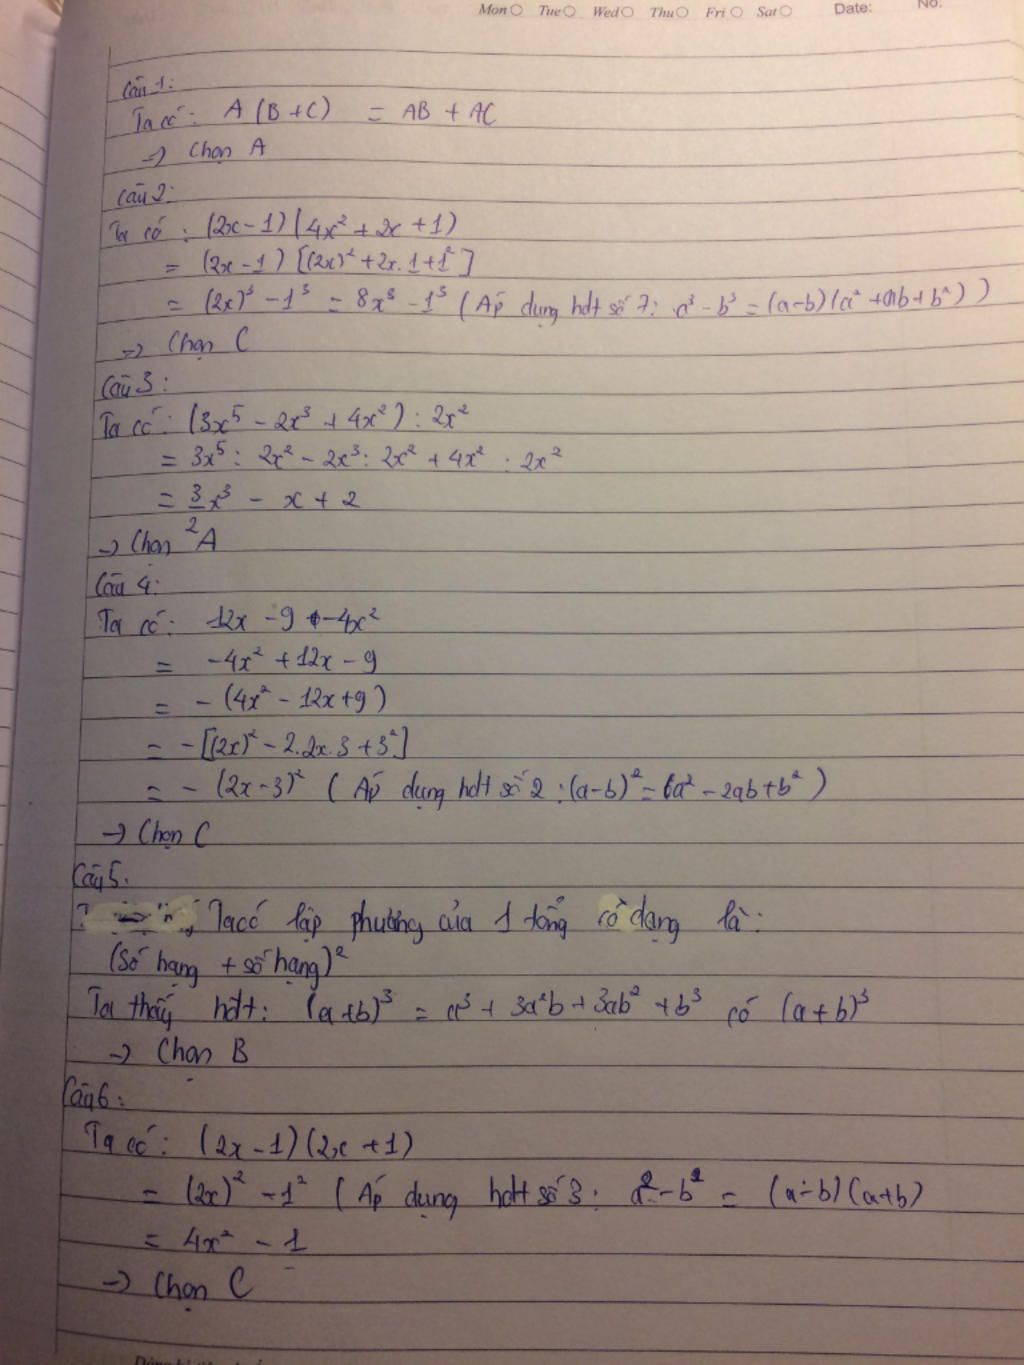 Mon Tue Wed Thu Fri Sat Date: No:
Câu 1:
Ta có: A (B + C) = AB + AC
→ Chọn A
Câu 2:
Ta có: (2x - 1)(4x² + 2x + 1)
= (2x - 1) [(2x)² + 2x. 1 + 1²]
= (2x)³ - 1³ = 8x³ - 1³ (Áp dụng hđt số 7: a³ - b³ = (a-b)(a² + ab + b²))
→ Chọn C
Câu 3:
Ta có: (3x⁵ - 2x³ + 4x²) : 2x²
= 3x⁵ : 2x² - 2x³ : 2x² + 4x² : 2x²
= 3/2 x³ - x + 2
→ Chọn A
Câu 4:
Ta có: 12x - 9 - 4x²
= -4x² + 12x - 9
= - (4x² - 12x + 9)
= - [(2x)² - 2.2x.3 + 3²]
= - (2x - 3)² (Áp dụng hđt số 2 : (a-b)² = (a² - 2ab + b²)
→ Chọn C
Câu 5.
Ta có lập phương của 1 tổng có dạng là:
(Số hạng + số hạng)²
Ta thấy hđt: (a+b)³ = a³ + 3a²b + 3ab² + b³ có (a + b)³
→ Chọn B
Câu 6:
Ta có: (2x - 1)(2x + 1)
= (2x)² - 1² (Áp dụng hđt số 3: a² - b² = (a - b)(a+b)
= 4x² - 1
→ Chọn C